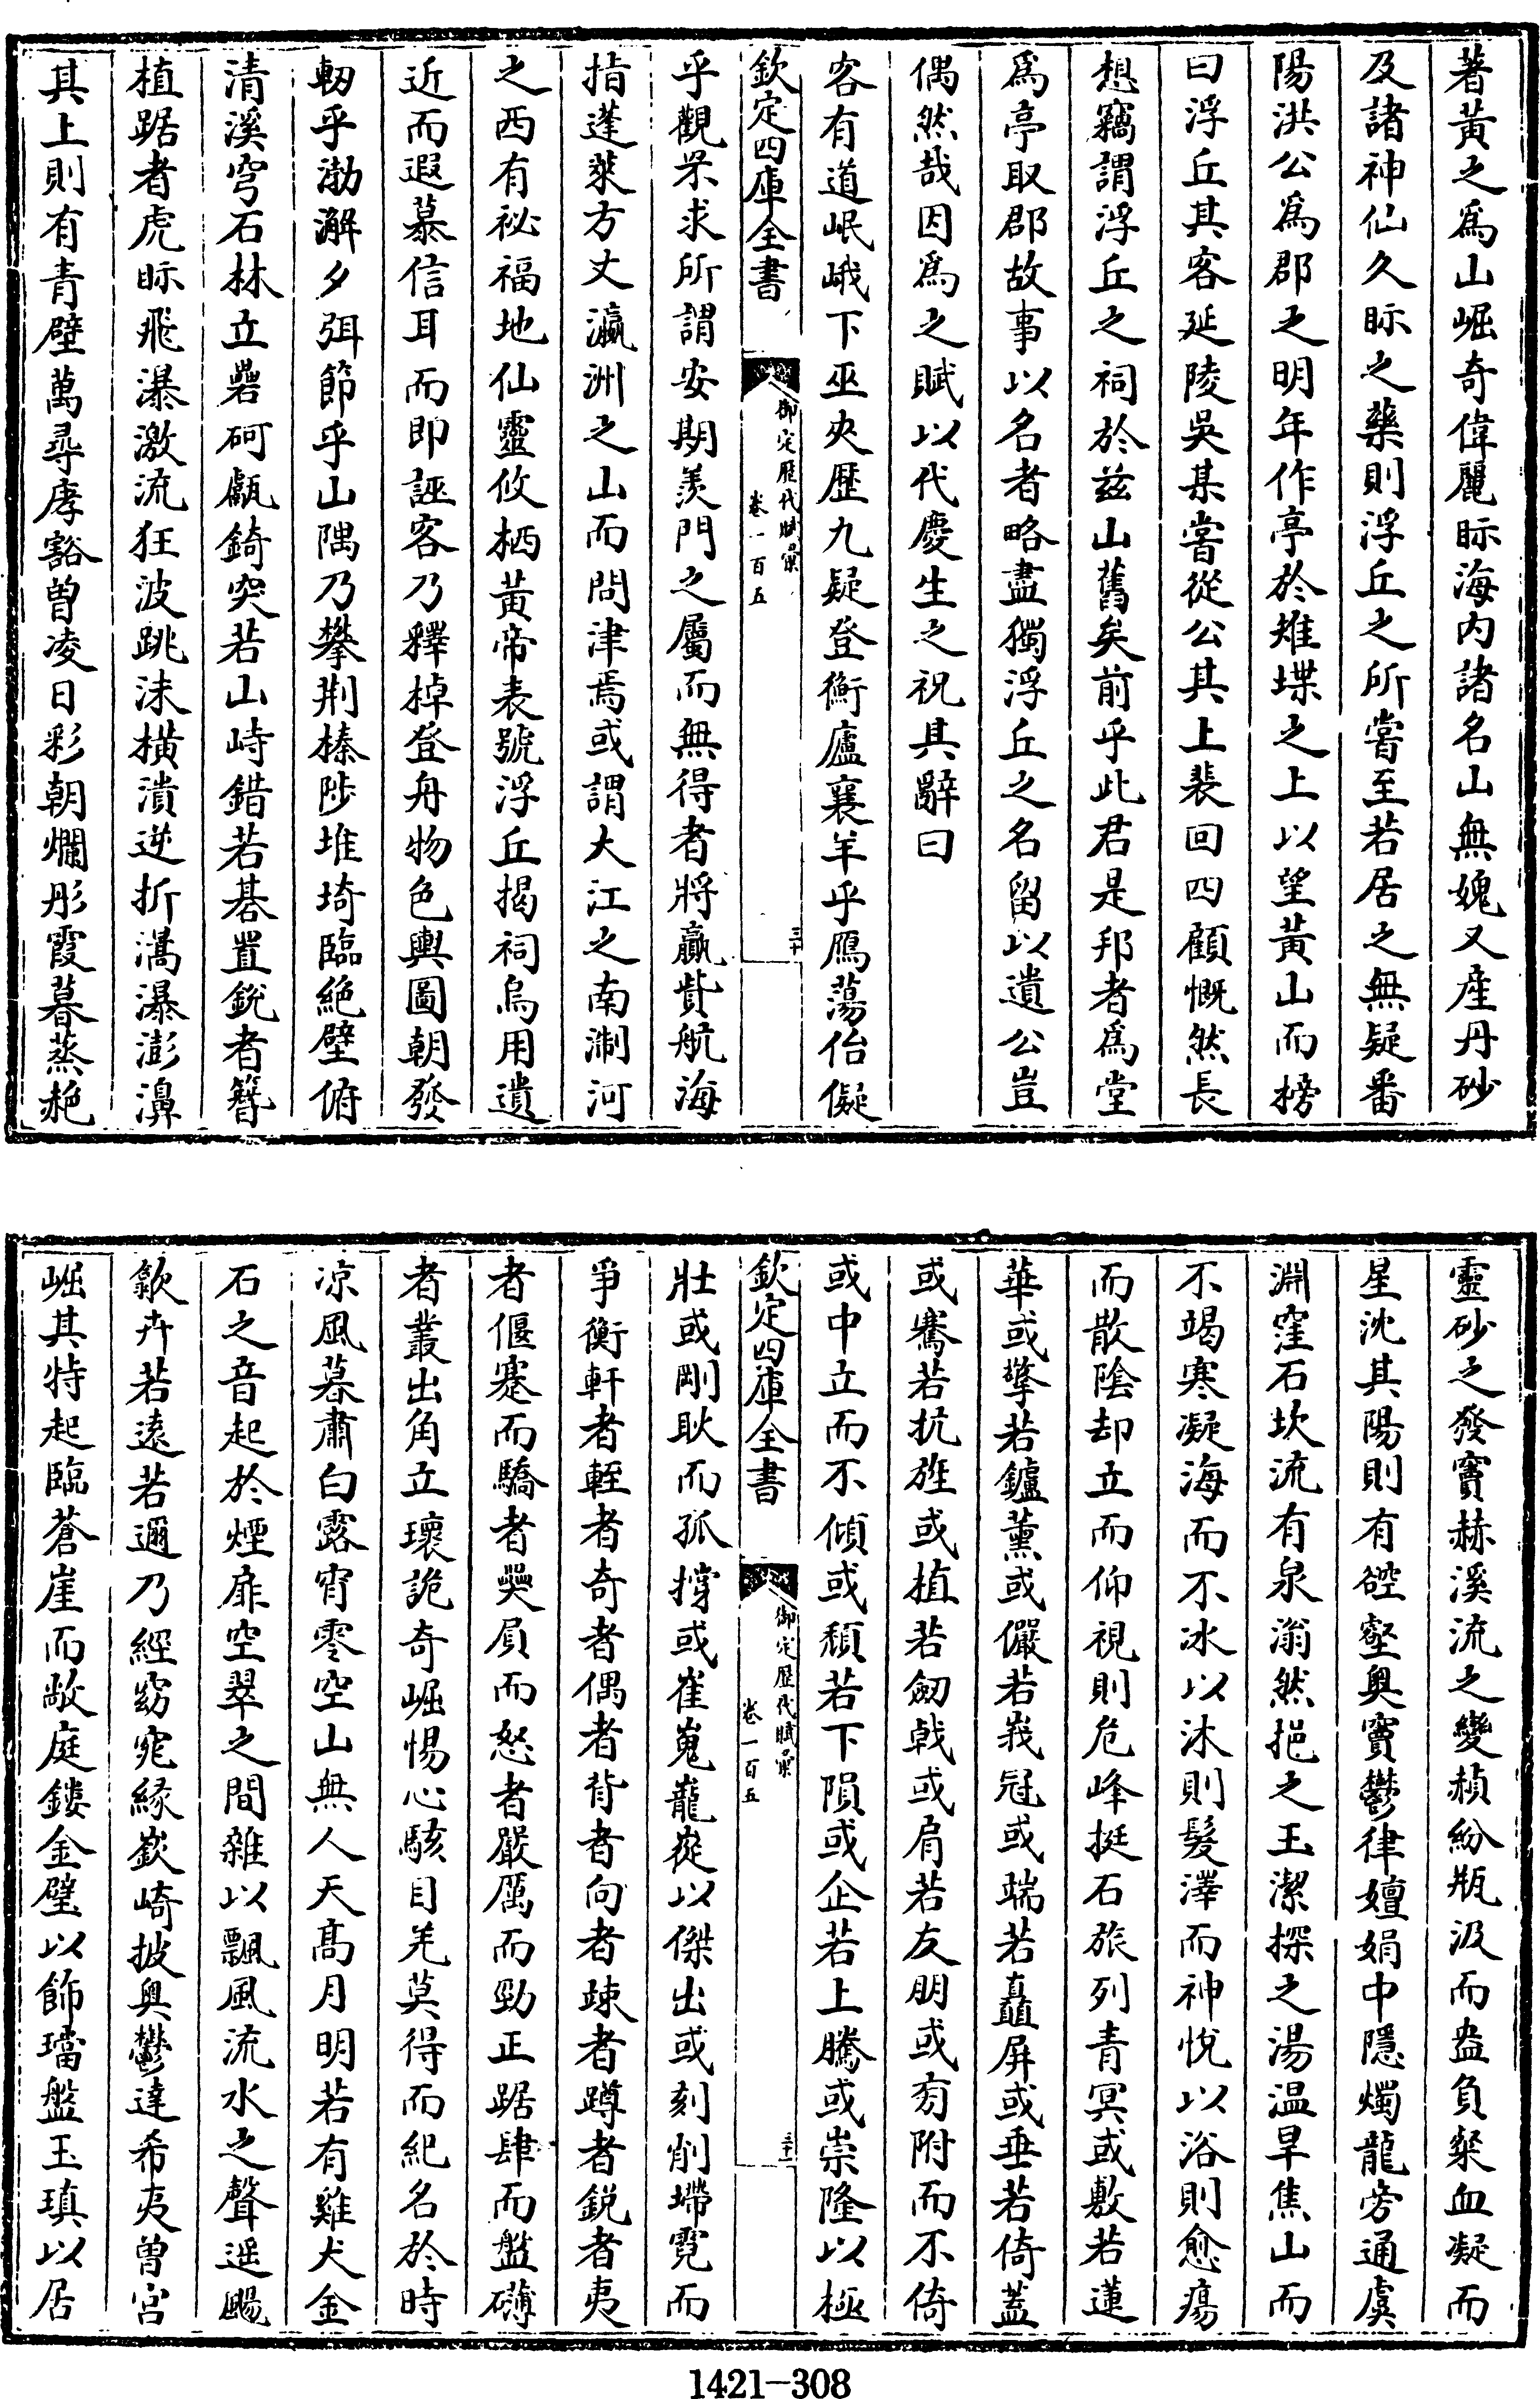 著黄之爲山崛奇偉麗眎海内諸名山無媿又産丹砂
及諸神仙久眎之藥則浮丘之所嘗至若居之無疑番
陽洪公爲郡之明年作亭於雉堞之上以望黄山而榜
曰浮丘其客延陵吳某嘗從公其上裴回四顧慨然長
想竊謂浮丘之祠於兹山舊矣前乎此君是邦者爲堂
爲亭取郡故事以名者略盡獨浮丘之名留以遺公豈
偶然哉因爲之賦以代慶生之祝其辭曰
客有道岷峨下巫夾歷九疑登衡廬襄羊乎鴈蕩佁儗
欽定四庫全書
御定歷代賦彙
卷一百五
三十
乎觀杲求所謂安期羨門之屬而無得者將贏貲航海
指蓬萊方丈瀛洲之山而問津焉或謂大江之南淛河
之西有祕福地仙靈攸栖黄帝表號浮丘揭祠烏用遺
近而遐慕信耳而即誣客乃釋棹登舟物色輿圖朝發
軔乎渤澥夕弭節乎山隅乃攀荆榛陟堆埼臨絶壁俯
清溪穹石林立礨砢甗錡突若山峙錯若碁置銳者簪
植踞者虎眎飛瀑激流狂波跳沫横潰逆折滈瀑澎濞
其上則有青壁萬尋庨豁曽凌日彩朝爛彤霞暮蒸赩
靈砂之發竇赫溪流之變赬紛瓶汲而盎負粲血凝而
星沈其陽則有硿壑奥竇鬱律嬗娟中隱燭龍旁通虞
淵窪石坎流有泉滃然挹之玉潔探之湯温旱焦山而
不竭寒凝海而不冰以沐則髮澤而神悅以浴則愈瘍
而散陰却立而仰視則危峰挺石旅列青冥或敷若蓮
華或擎若鑪薰或儼若峩冠或端若矗屏或垂若倚蓋
或騫若抗旌或植若劒戟或肩若友朋或旁附而不倚
或中立而不傾或頹若下隕或企若上騰或崇隆以極
欽定四庫全書
御定歷代賦彙
卷一百五
三十一
壯或剛耿而孤撐或崔嵬巃嵸以傑出或刻削墆霓而
爭衡軒者輊者奇者偶者背者向者疎者蹲者銳者夷
者偃蹇而驕者奰屓而怒者嚴厲而勁正踞肆而盤礴
者叢出角立瓌詭奇崛惕心駭目羌莫得而紀名於時
凉風暮肅白露宵零空山無人天高月明若有雞犬金
石之音起於煙扉空翠之間雜以飄風流水之聲遥颺
歙卉若遠若邇乃經窈窕緣嶔崎披奥鬱達希夷曽宫
崛其特起臨蒼崖而敞庭鏤金璧以飾璫盤玉瑱以居
1421-308